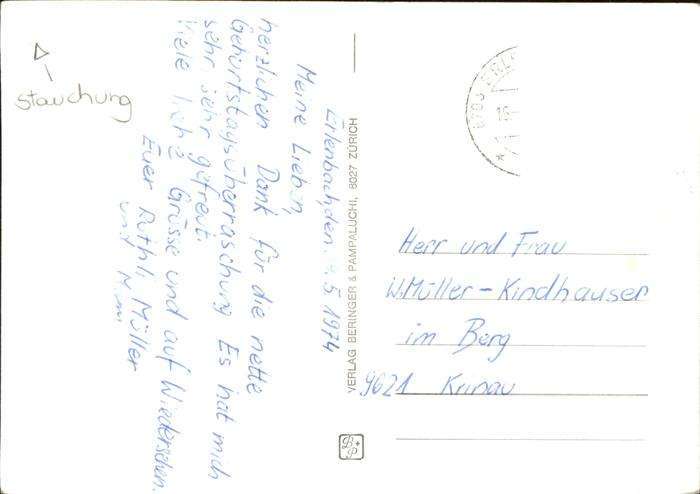 Erlenbach, den 5 1974
Meine Lieben,
herzlichen Dank für die nette
Geburtstagsüberraschung Es hat mich
sehr, sehr gefreut.
Viele liebe Grüsse und auf Wiedersehen.
Euer Ruthli Müller
und
Stauchung
VERLAG BERINGER & PAMPALUCHI, 8027 ZÜRICH
Herr und Frau
W. Müller-Kindhauser
im Berg
9621 Krinau